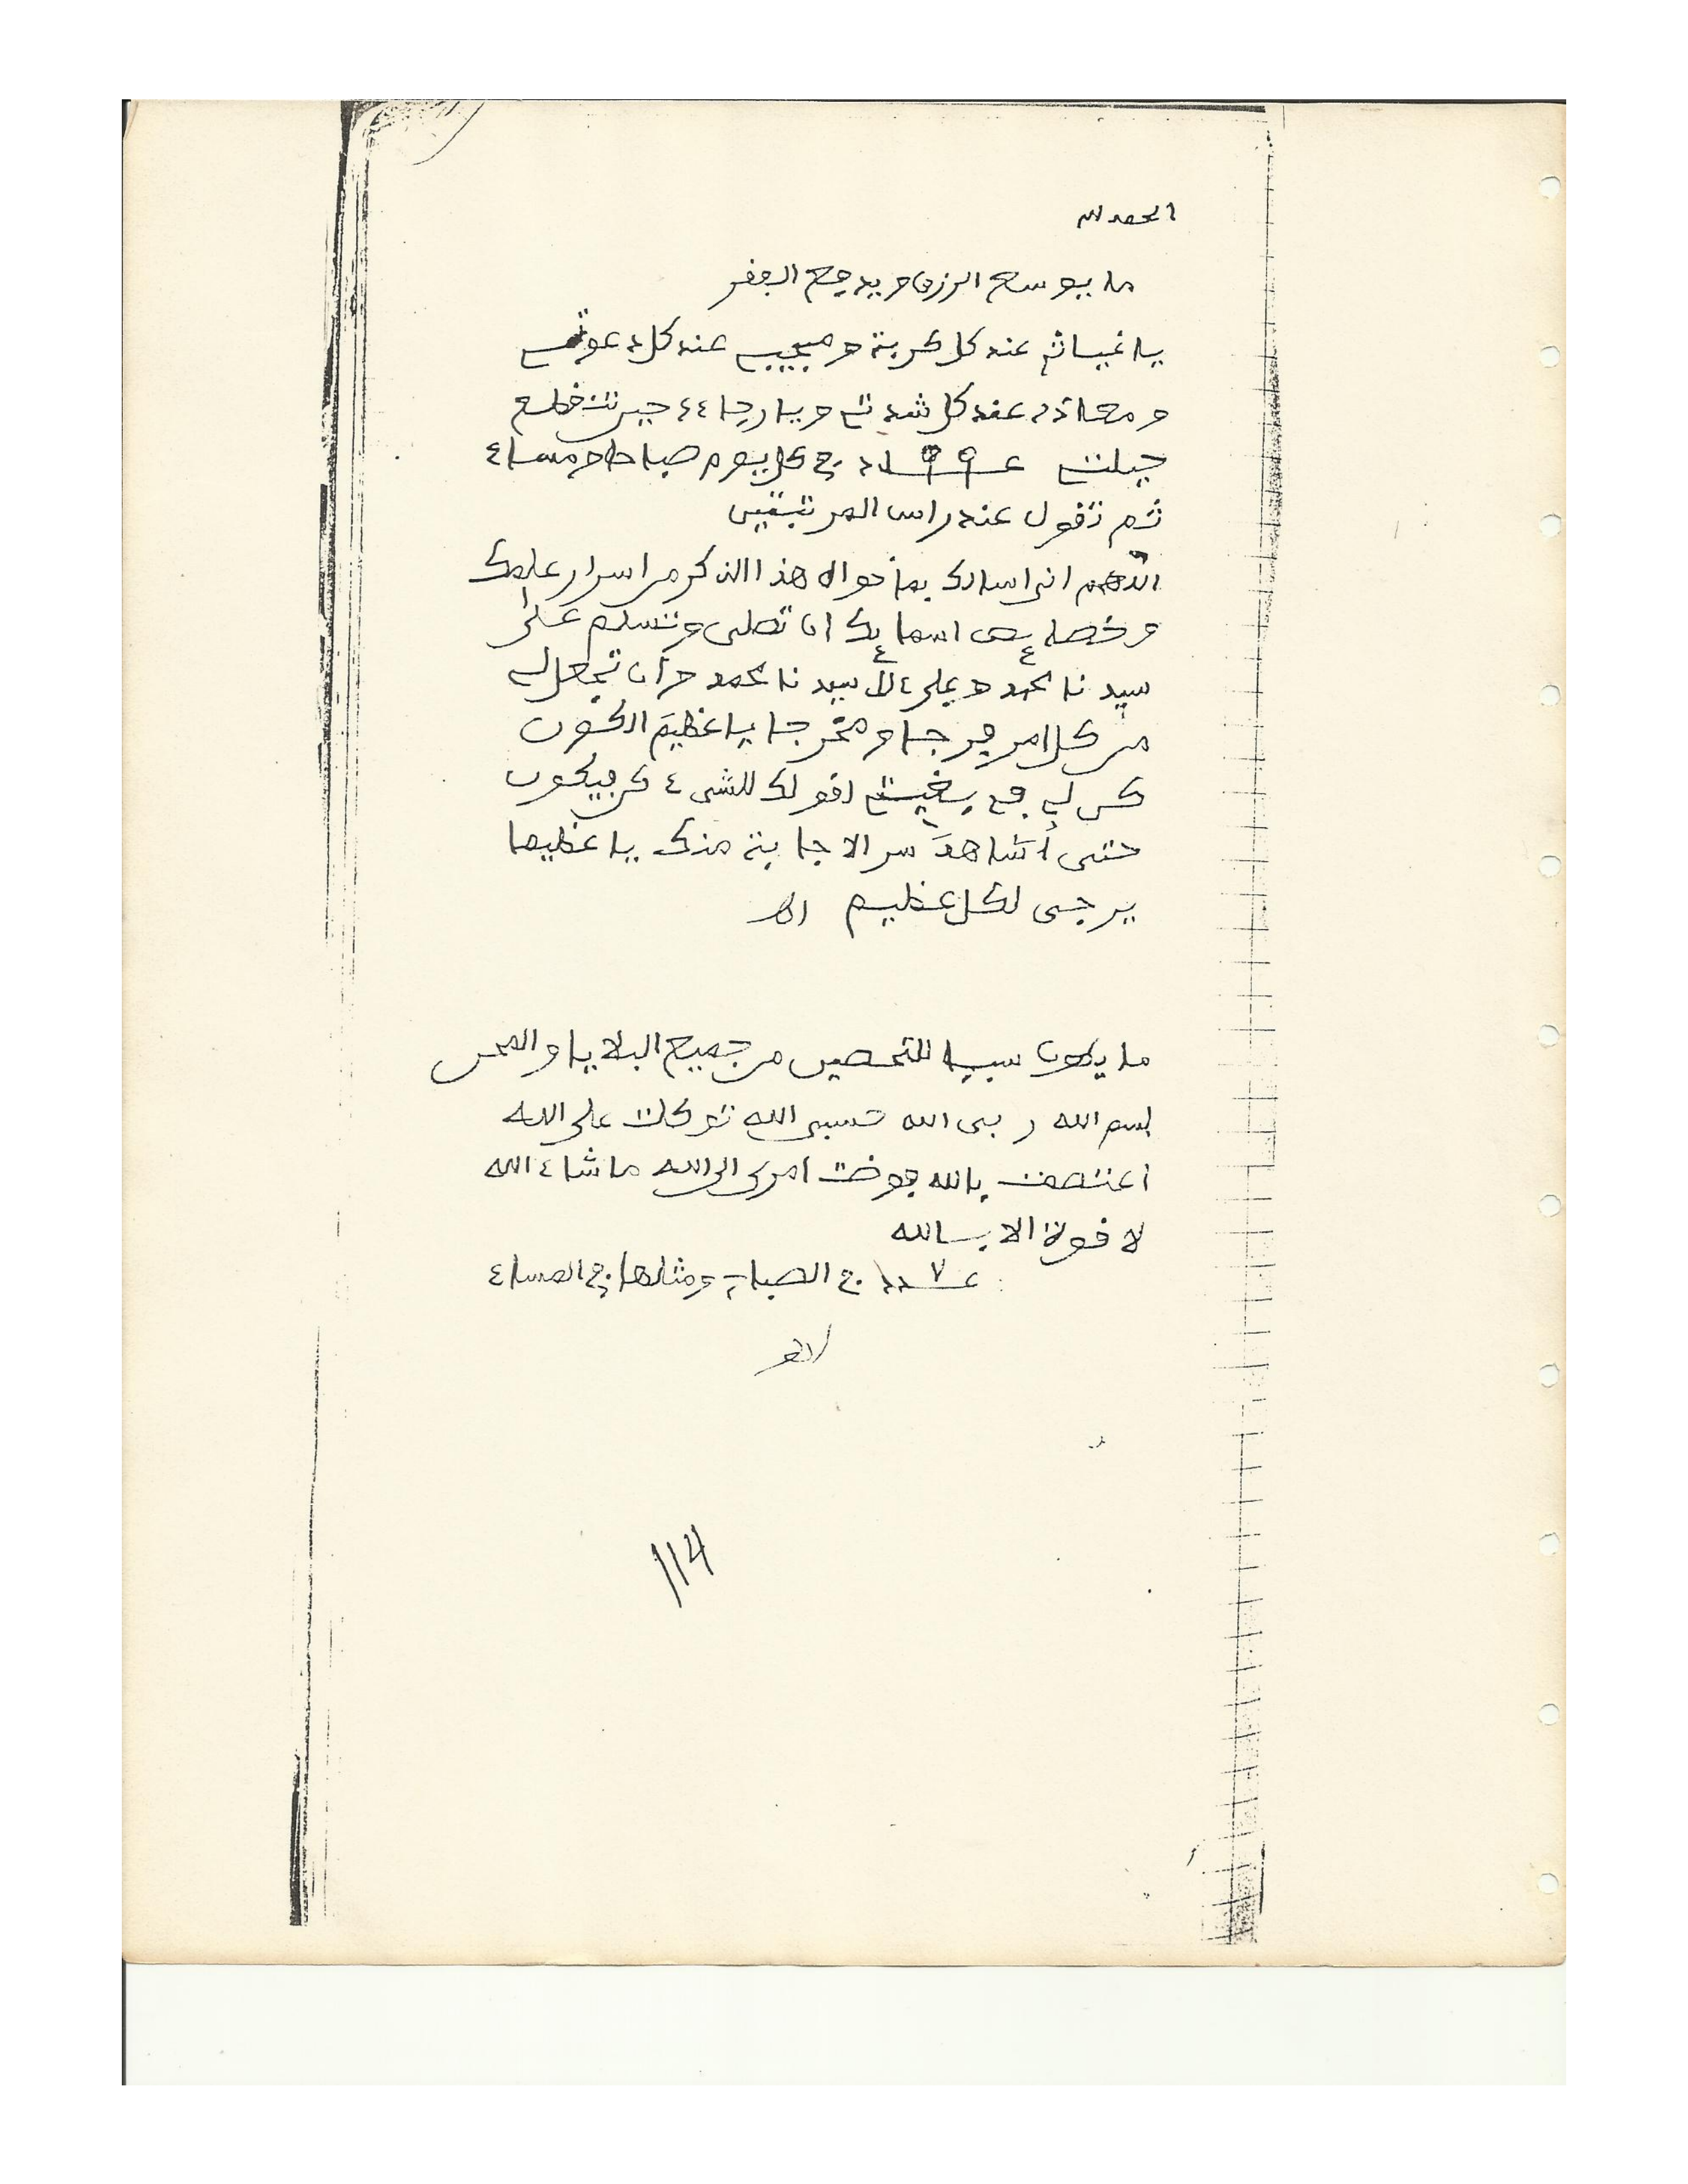 الحمد لله
ما يوسع الرزق ويدفع الفقر
يا غياثي عند كل كربة ومجيبي عند كل دعوتي
ومعاذي عند كل شدتي ويا رجاءي حين تنقطع
حيلتي عـ٩٩ـدد في كل يوم صباحا ومساء
ثم تقول عند راس المرتبتين
اللهم اني اسالك بما حواه هذا الذكر من اسرار علمك
وخصايص اسمايك ان تصلي وتسلم على
سيدنا محمد وعلى ءال سيدنا محمد وأن تجعل لي
من كل امر فرجا ومخرجا يا عظيم الكون
كن لي في بغيتي اقولك للشيء كن فيكون
حتى أشاهد سر الاجابة منك يا عظيما
يرجى لكل عظيم اهـ
ما يكون سببا للتحصين من جميع البلايا والمحن
بسم الله ربي الله حسبي الله توكلت على الله
اعتصمت بالله فوضت امري الى الله ما شاء الله
لا قوة الا بالله
عـ٧ـدد في الصباح ومثلها في المساء
114